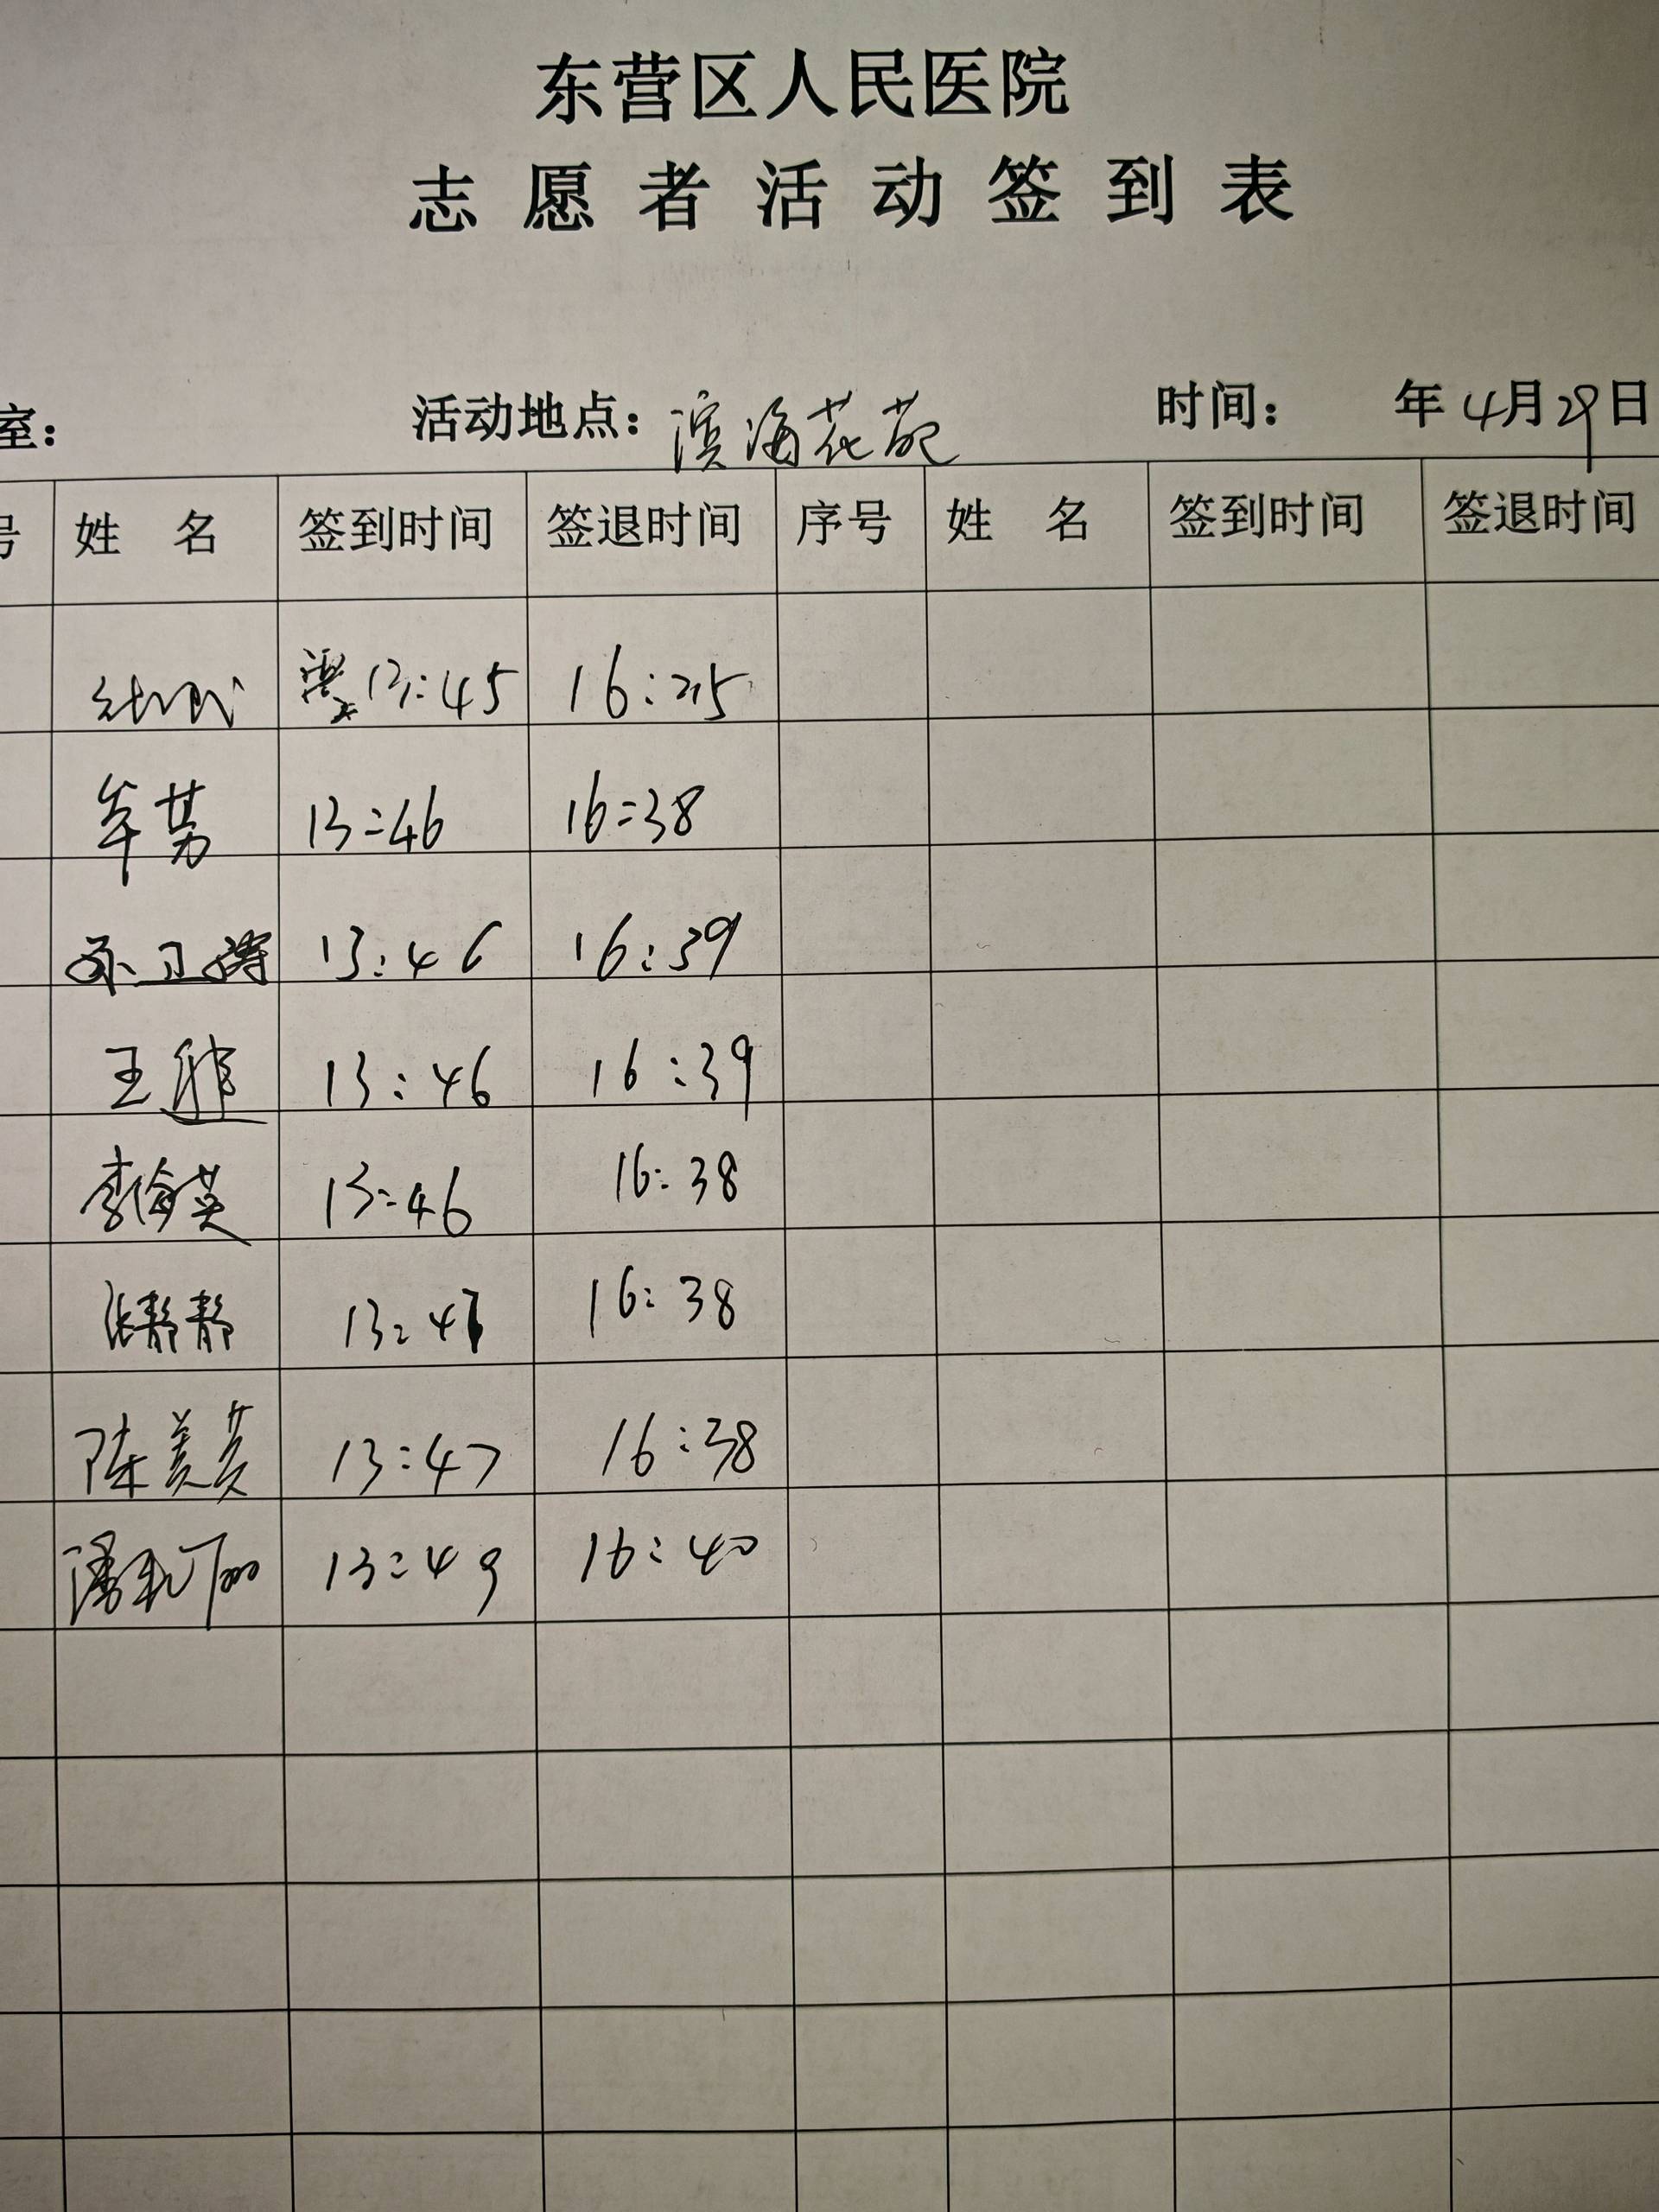 东营区人民医院
志愿者活动签到表
室： 活动地点：滨海花苑 时间： 年4月29日
号 姓名 签到时间 签退时间 序号 姓名 签到时间 签退时间
13:45 16:25
牟男 13:46 16:38
孙卫涛 13:46 16:39
王雅 13:46 16:39
李海英 13:46 16:38
张静静 13:47 16:38
陈美英 13:47 16:38
潘 丽 13:49 16:40